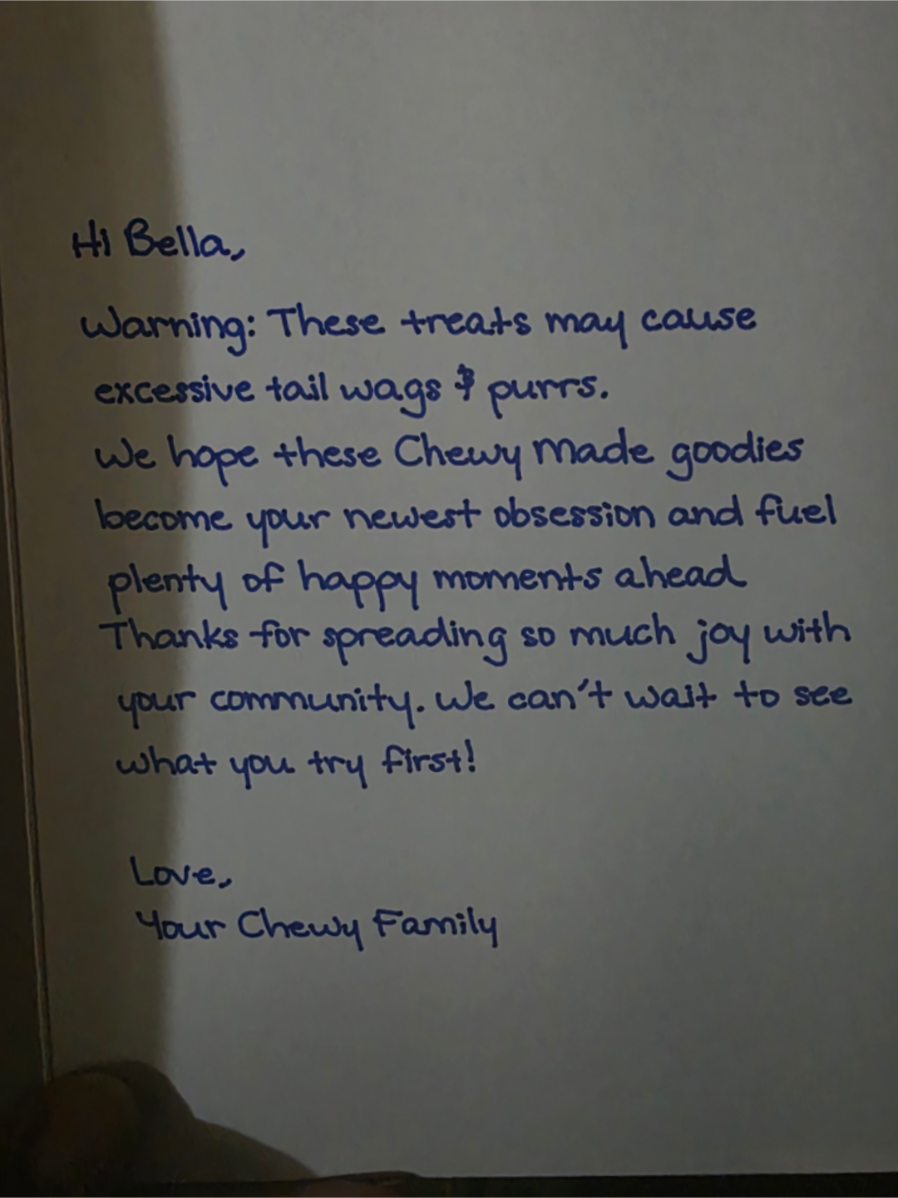 Hi Bella,
Warning: These treats may cause
excessive tail wags & purrs.
We hope these Chewy Made goodies
become your newest obsession and fuel
plenty of happy moments ahead
Thanks for spreading so much joy with
your community. We can't wait to see
what you try first!
Love,
Your Chewy Family